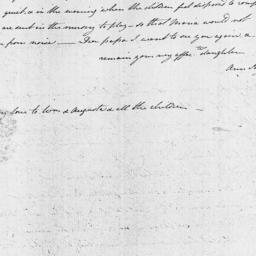 quiet & in the evening when the children feel disposed to romp
are sent in the nursery to play - so that Mama would not
from noise. — Dear papa I want to see you again a
remain your affec.te daughter
Ann
love to Wm & Augusta & all the children —